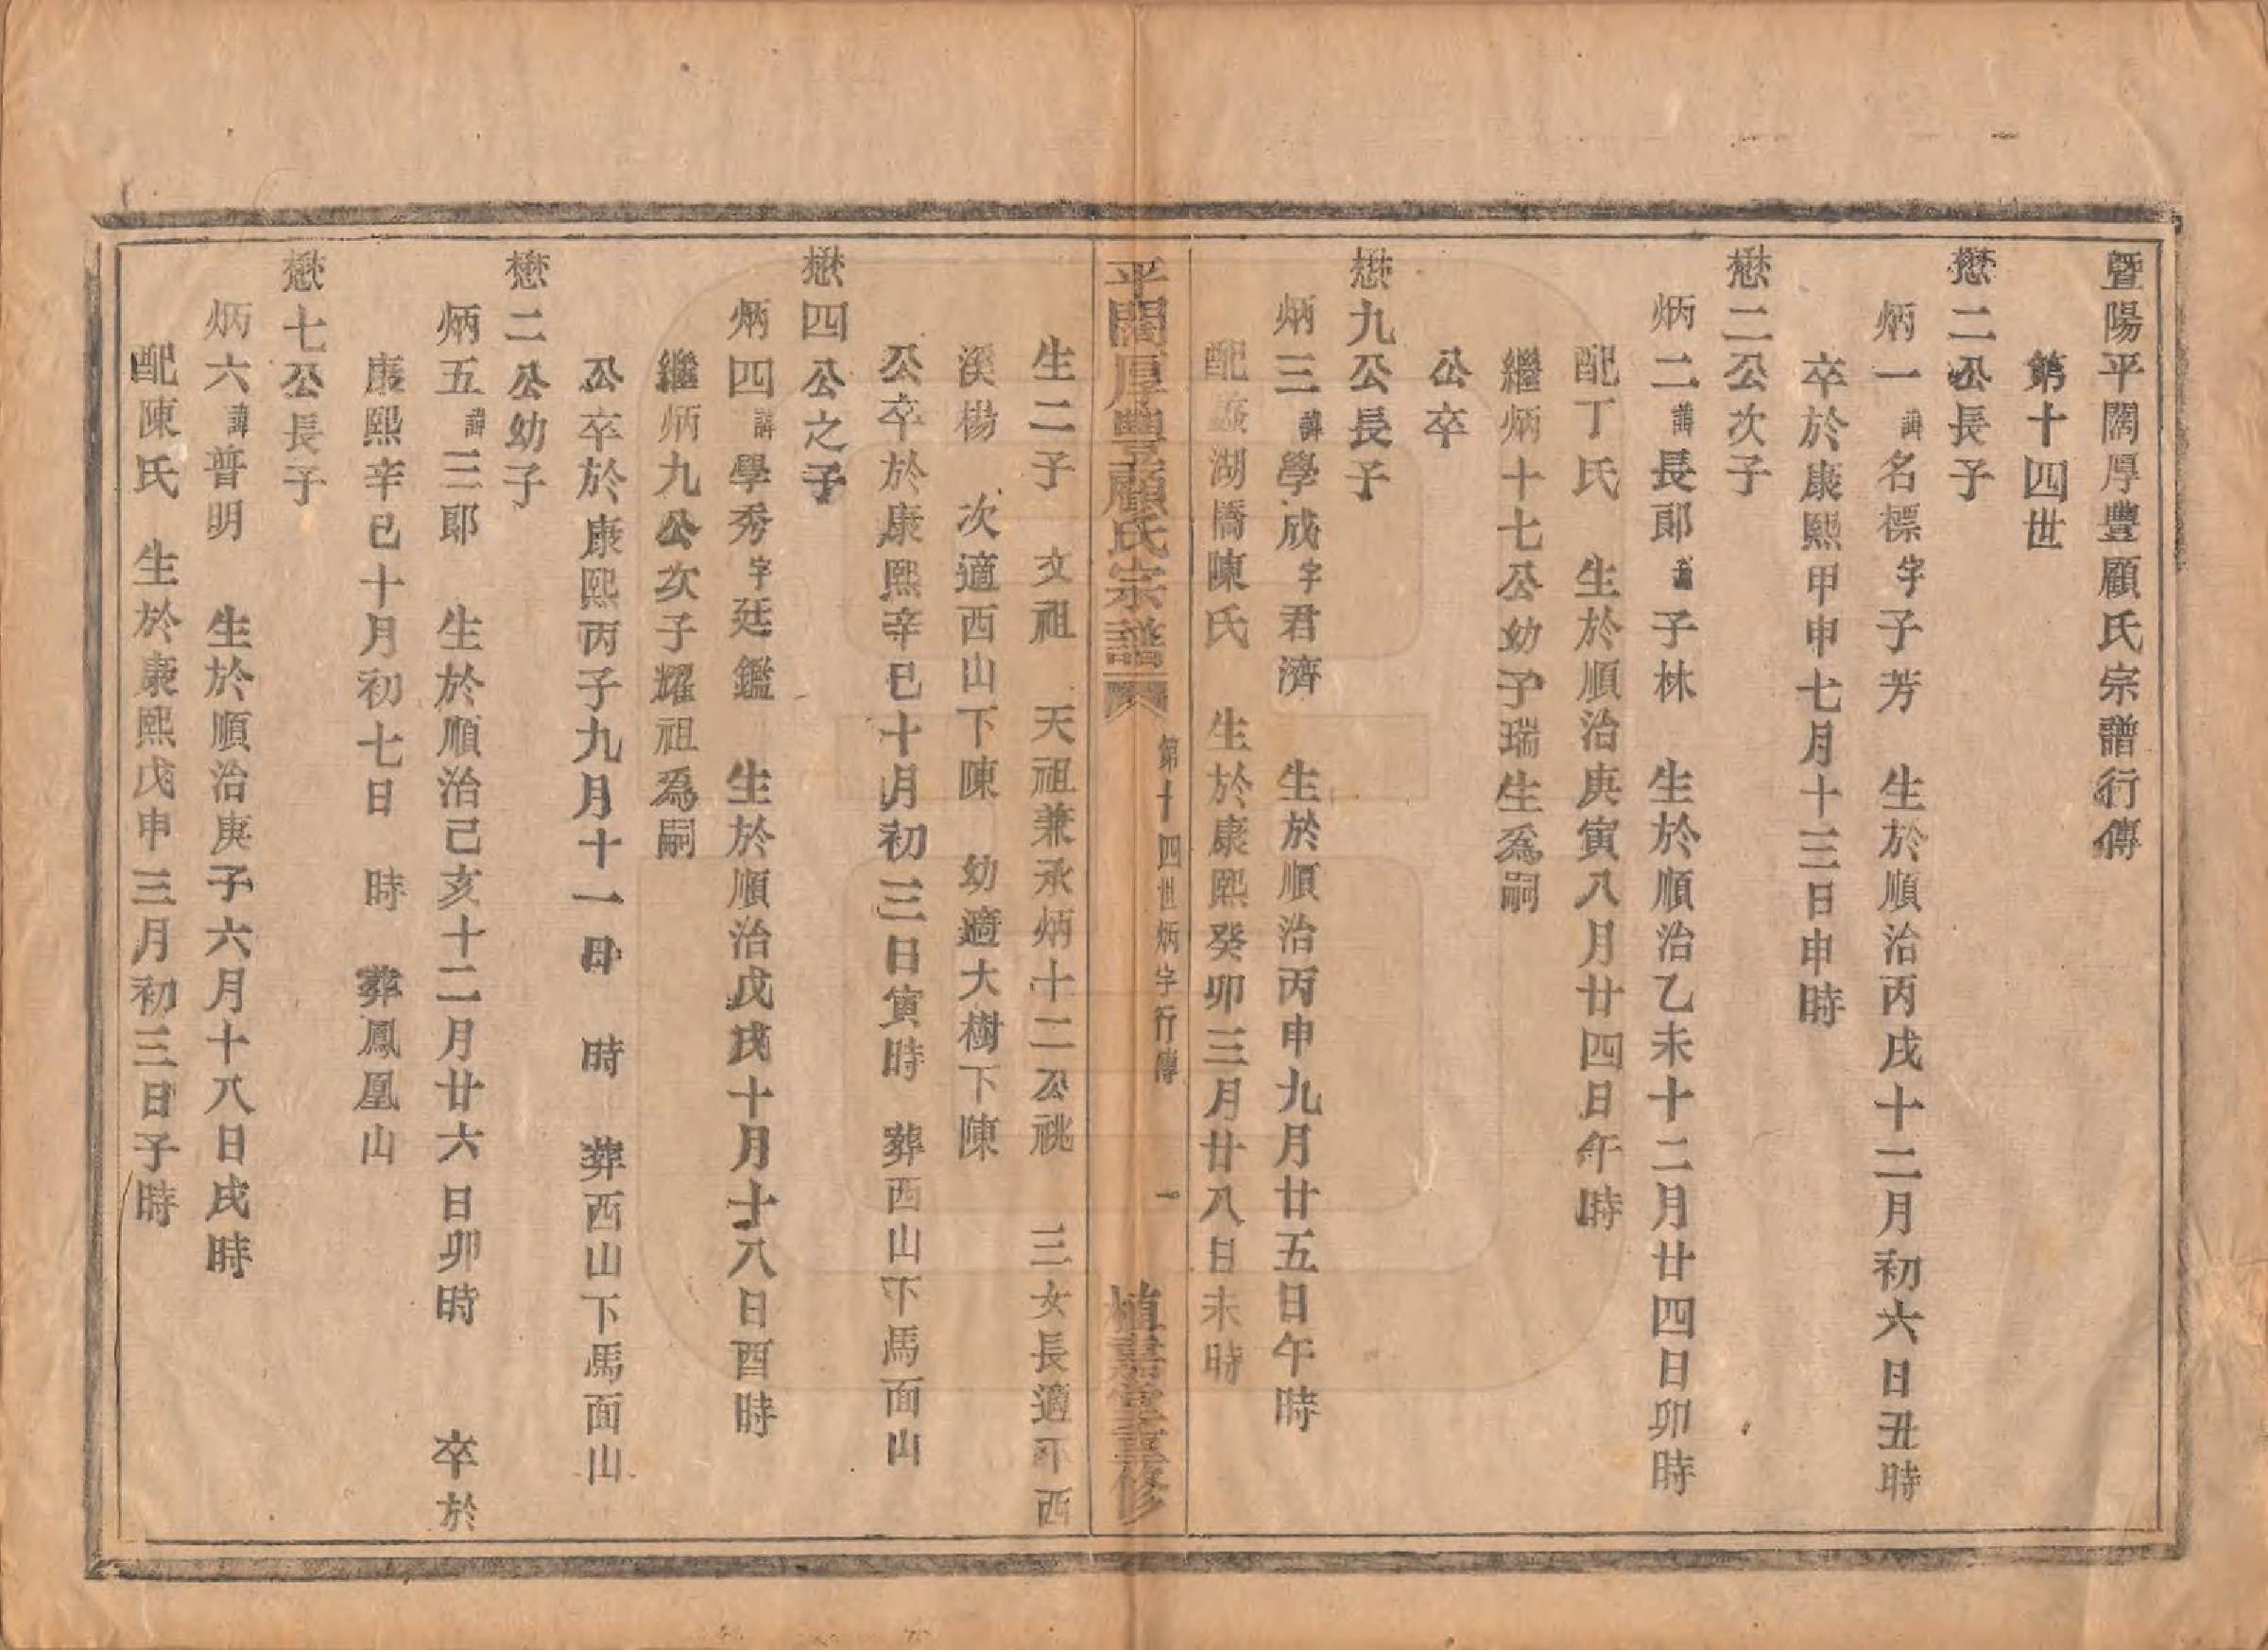 暨陽平闊厚豐顧氏宗譜行傳
第十四世
懋二公長子
炳一諱名標字子芳 生於順治丙戌十二月初六日丑時
卒於康熙甲申七月十三日申時
懋二公次子
炳二諱長郎字子林 生於順治乙未十二月廿四日卯時
配丁氏 生於順治庚寅八月廿四日午時
繼炳十七公幼子瑞生爲嗣
公卒
懋九公長子
炳三諱學成字君濟 生於順治丙申九月廿五日午時
配 湖橋陳氏 生於康熙癸卯三月廿八日未時
平闊厚豐顧氏宗譜 第十四世炳字行傳 一 植嘉堂重修
生二子 文祖 天祖兼承炳十二公祧 三女長適下西
溪楊 次適西山下陳 幼適大樹下陳
公卒於康熙辛巳十月初三日寅時 葬西山下馬面山
懋四公之子
炳四諱學秀字廷鑑 生於順治戊戌十月十八日酉時
繼炳九公次子耀祖爲嗣
公卒於康熙丙子九月十一日 時 葬西山下馬面山
懋二公幼子
炳五諱三郎 生於順治己亥十二月廿六日卯時 卒於
康熙辛巳十月初七日 時 葬鳳凰山
懋七公長子
炳六諱普明 生於順治庚子六月十八日戌時
配陳氏 生於康熙戊申三月初三日子時